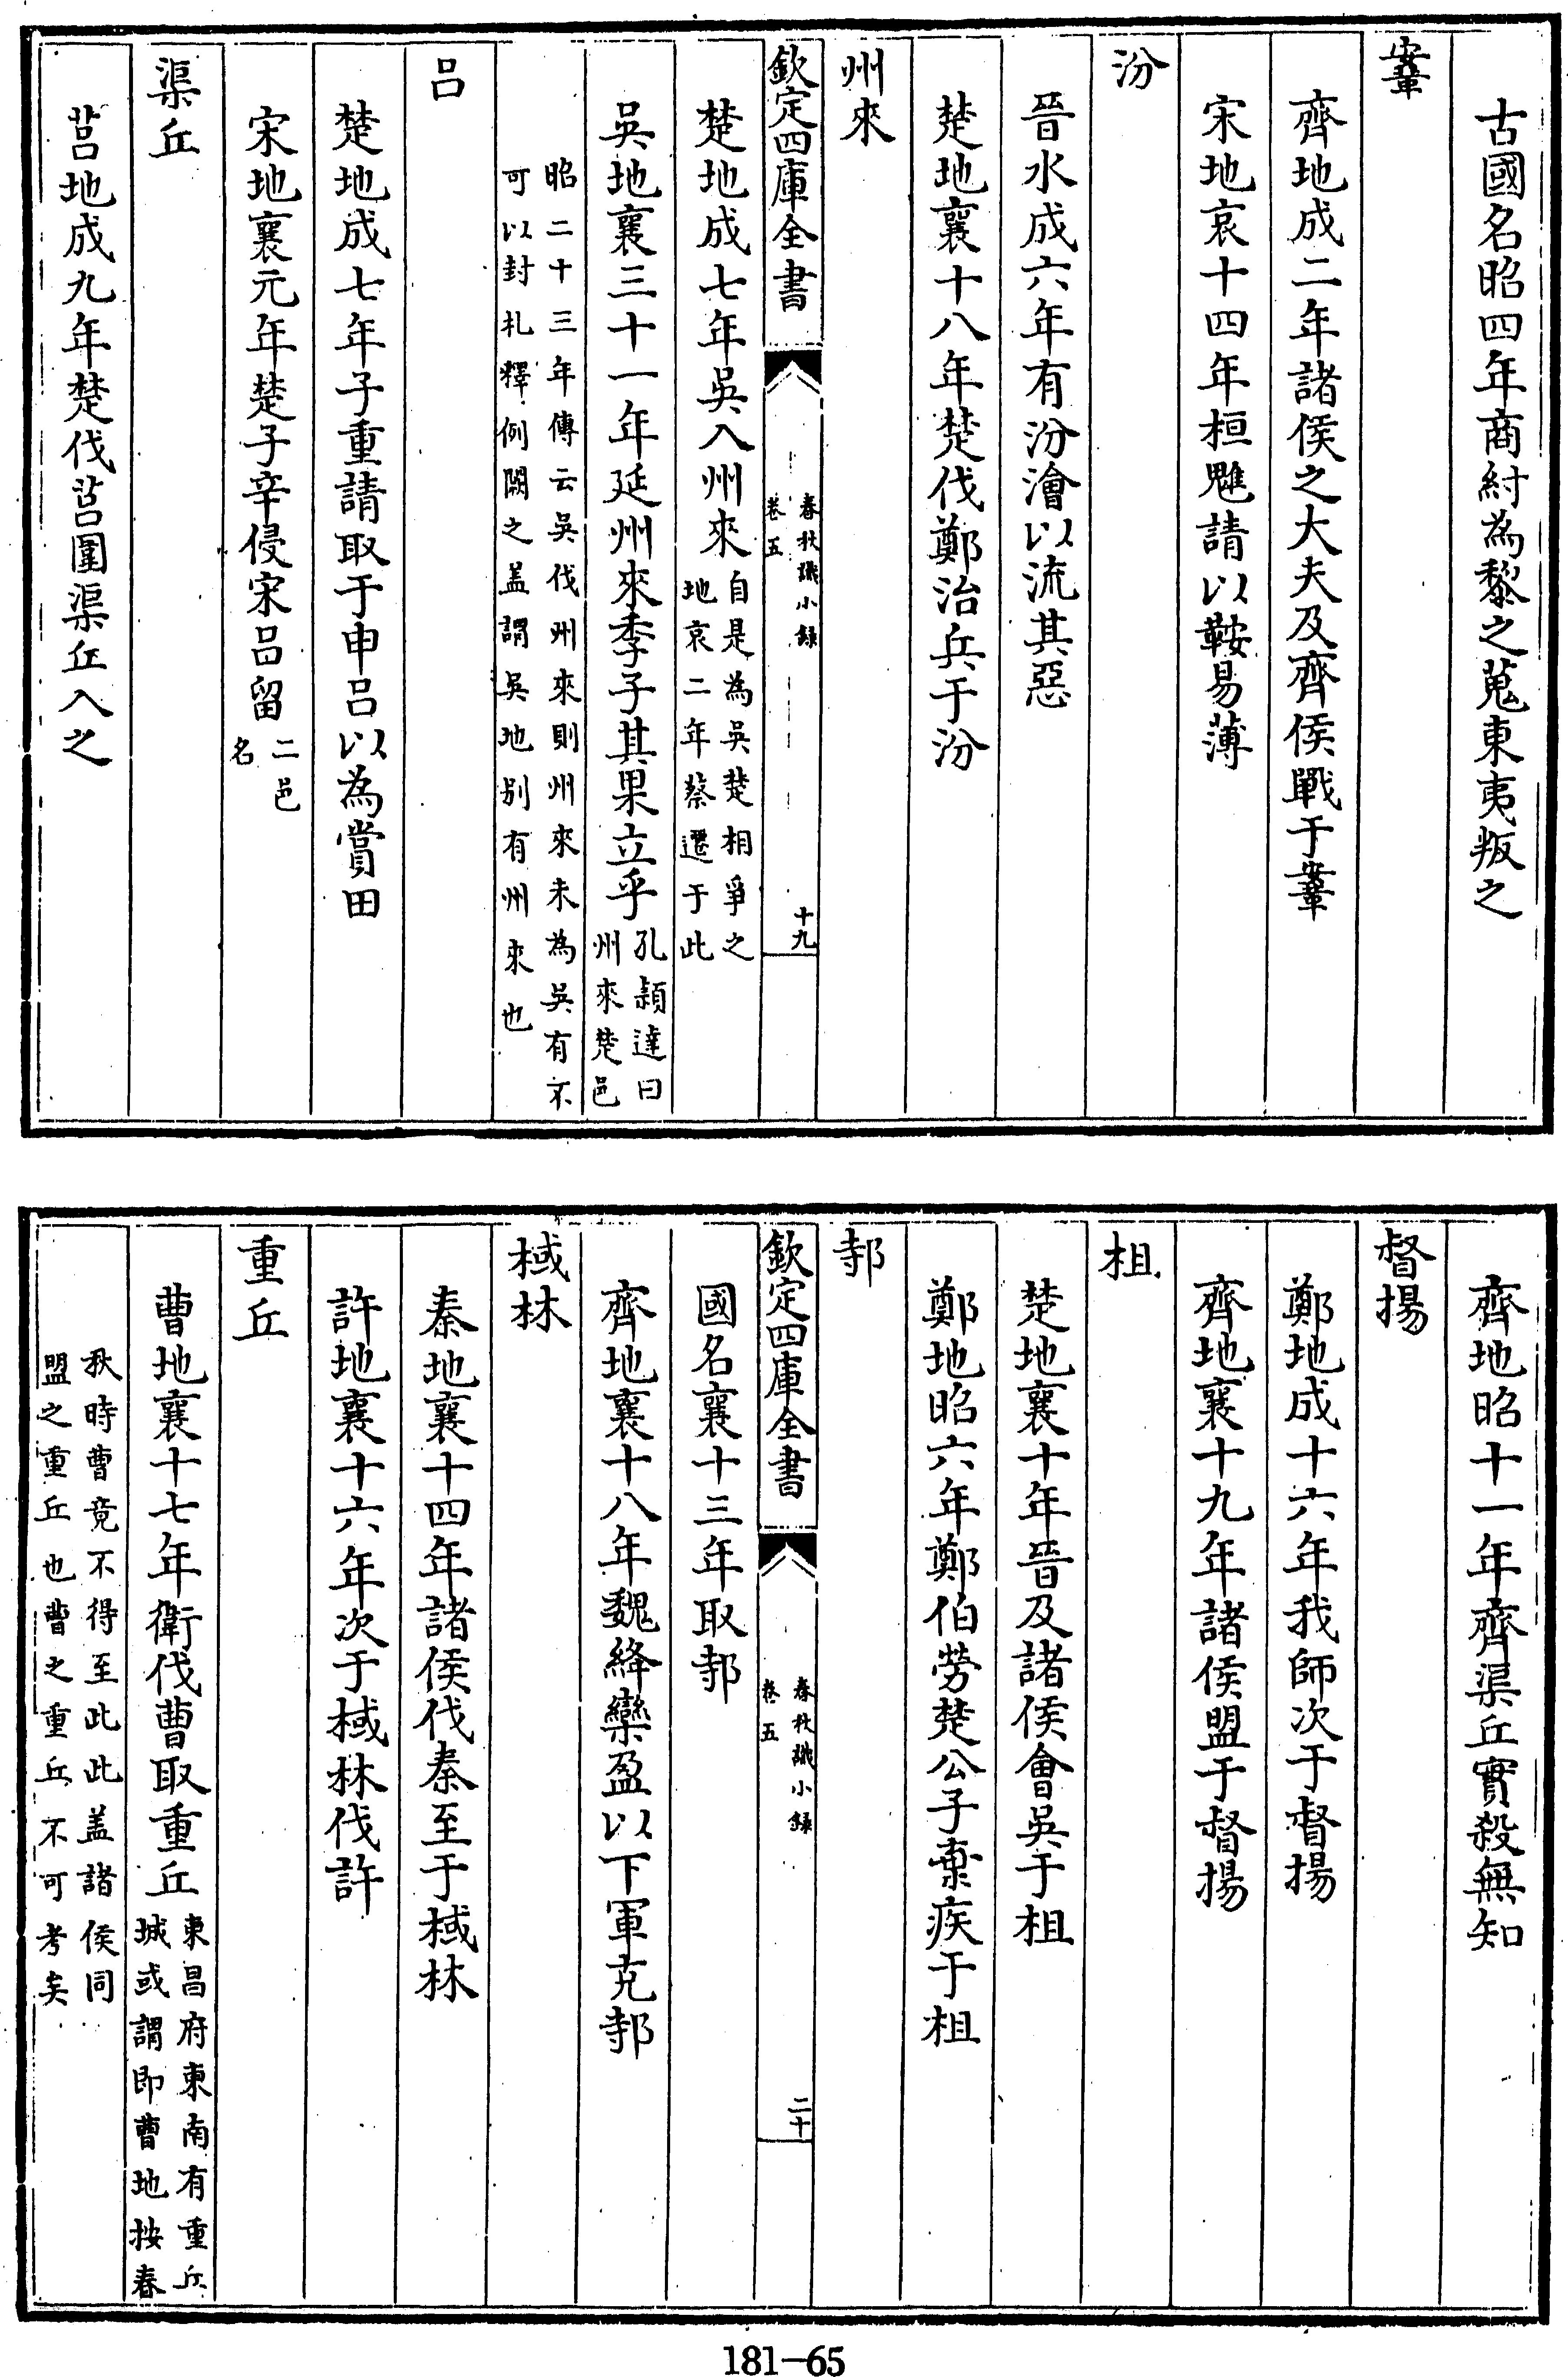 古國名昭四年商紂為黎之蒐東夷叛之
鞌
齊地成二年諸侯之大夫及齊侯戰于鞌
宋地哀十四年桓魋請以鞍易薄
汾
晉水成六年有汾澮以流其惡
楚地襄十八年楚伐鄭治兵于汾
州來
欽定四庫全書
春秋識小錄
卷五
十九
楚地成七年吳入州來自是為吳楚相爭之
地哀二年蔡遷于此
吳地襄三十一年延州來季子其果立乎孔穎達曰
州來楚邑
昭二十三年傳云吳伐州來則州來未為吳有不
可以封札釋例闕之盖謂吳地别有州來也
呂
楚地成七年子重請取于申呂以為賞田
宋地襄元年楚子辛侵宋呂留二邑
名
渠丘
莒地成九年楚伐莒圍渠丘入之
齊地昭十一年齊渠丘實殺無知
督揚
鄭地成十六年我師次于督揚
齊地襄十九年諸侯盟于督揚
柤
楚地襄十年晉及諸侯會吳于柤
鄭地昭六年鄭伯勞楚公子棄疾于柤
邿
欽定四庫全書
春秋識小錄
卷五
二十
國名襄十三年取邿
齊地襄十八年魏絳欒盈以下軍克邿
棫林
秦地襄十四年諸侯伐秦至于棫林
許地襄十六年次于棫林伐許
重丘
曹地襄十七年衛伐曹取重丘東昌府東南有重丘
城或謂即曹地按春
秋時曹竟不得至此此盖諸侯同
盟之重丘也曹之重丘不可考矣
181-65